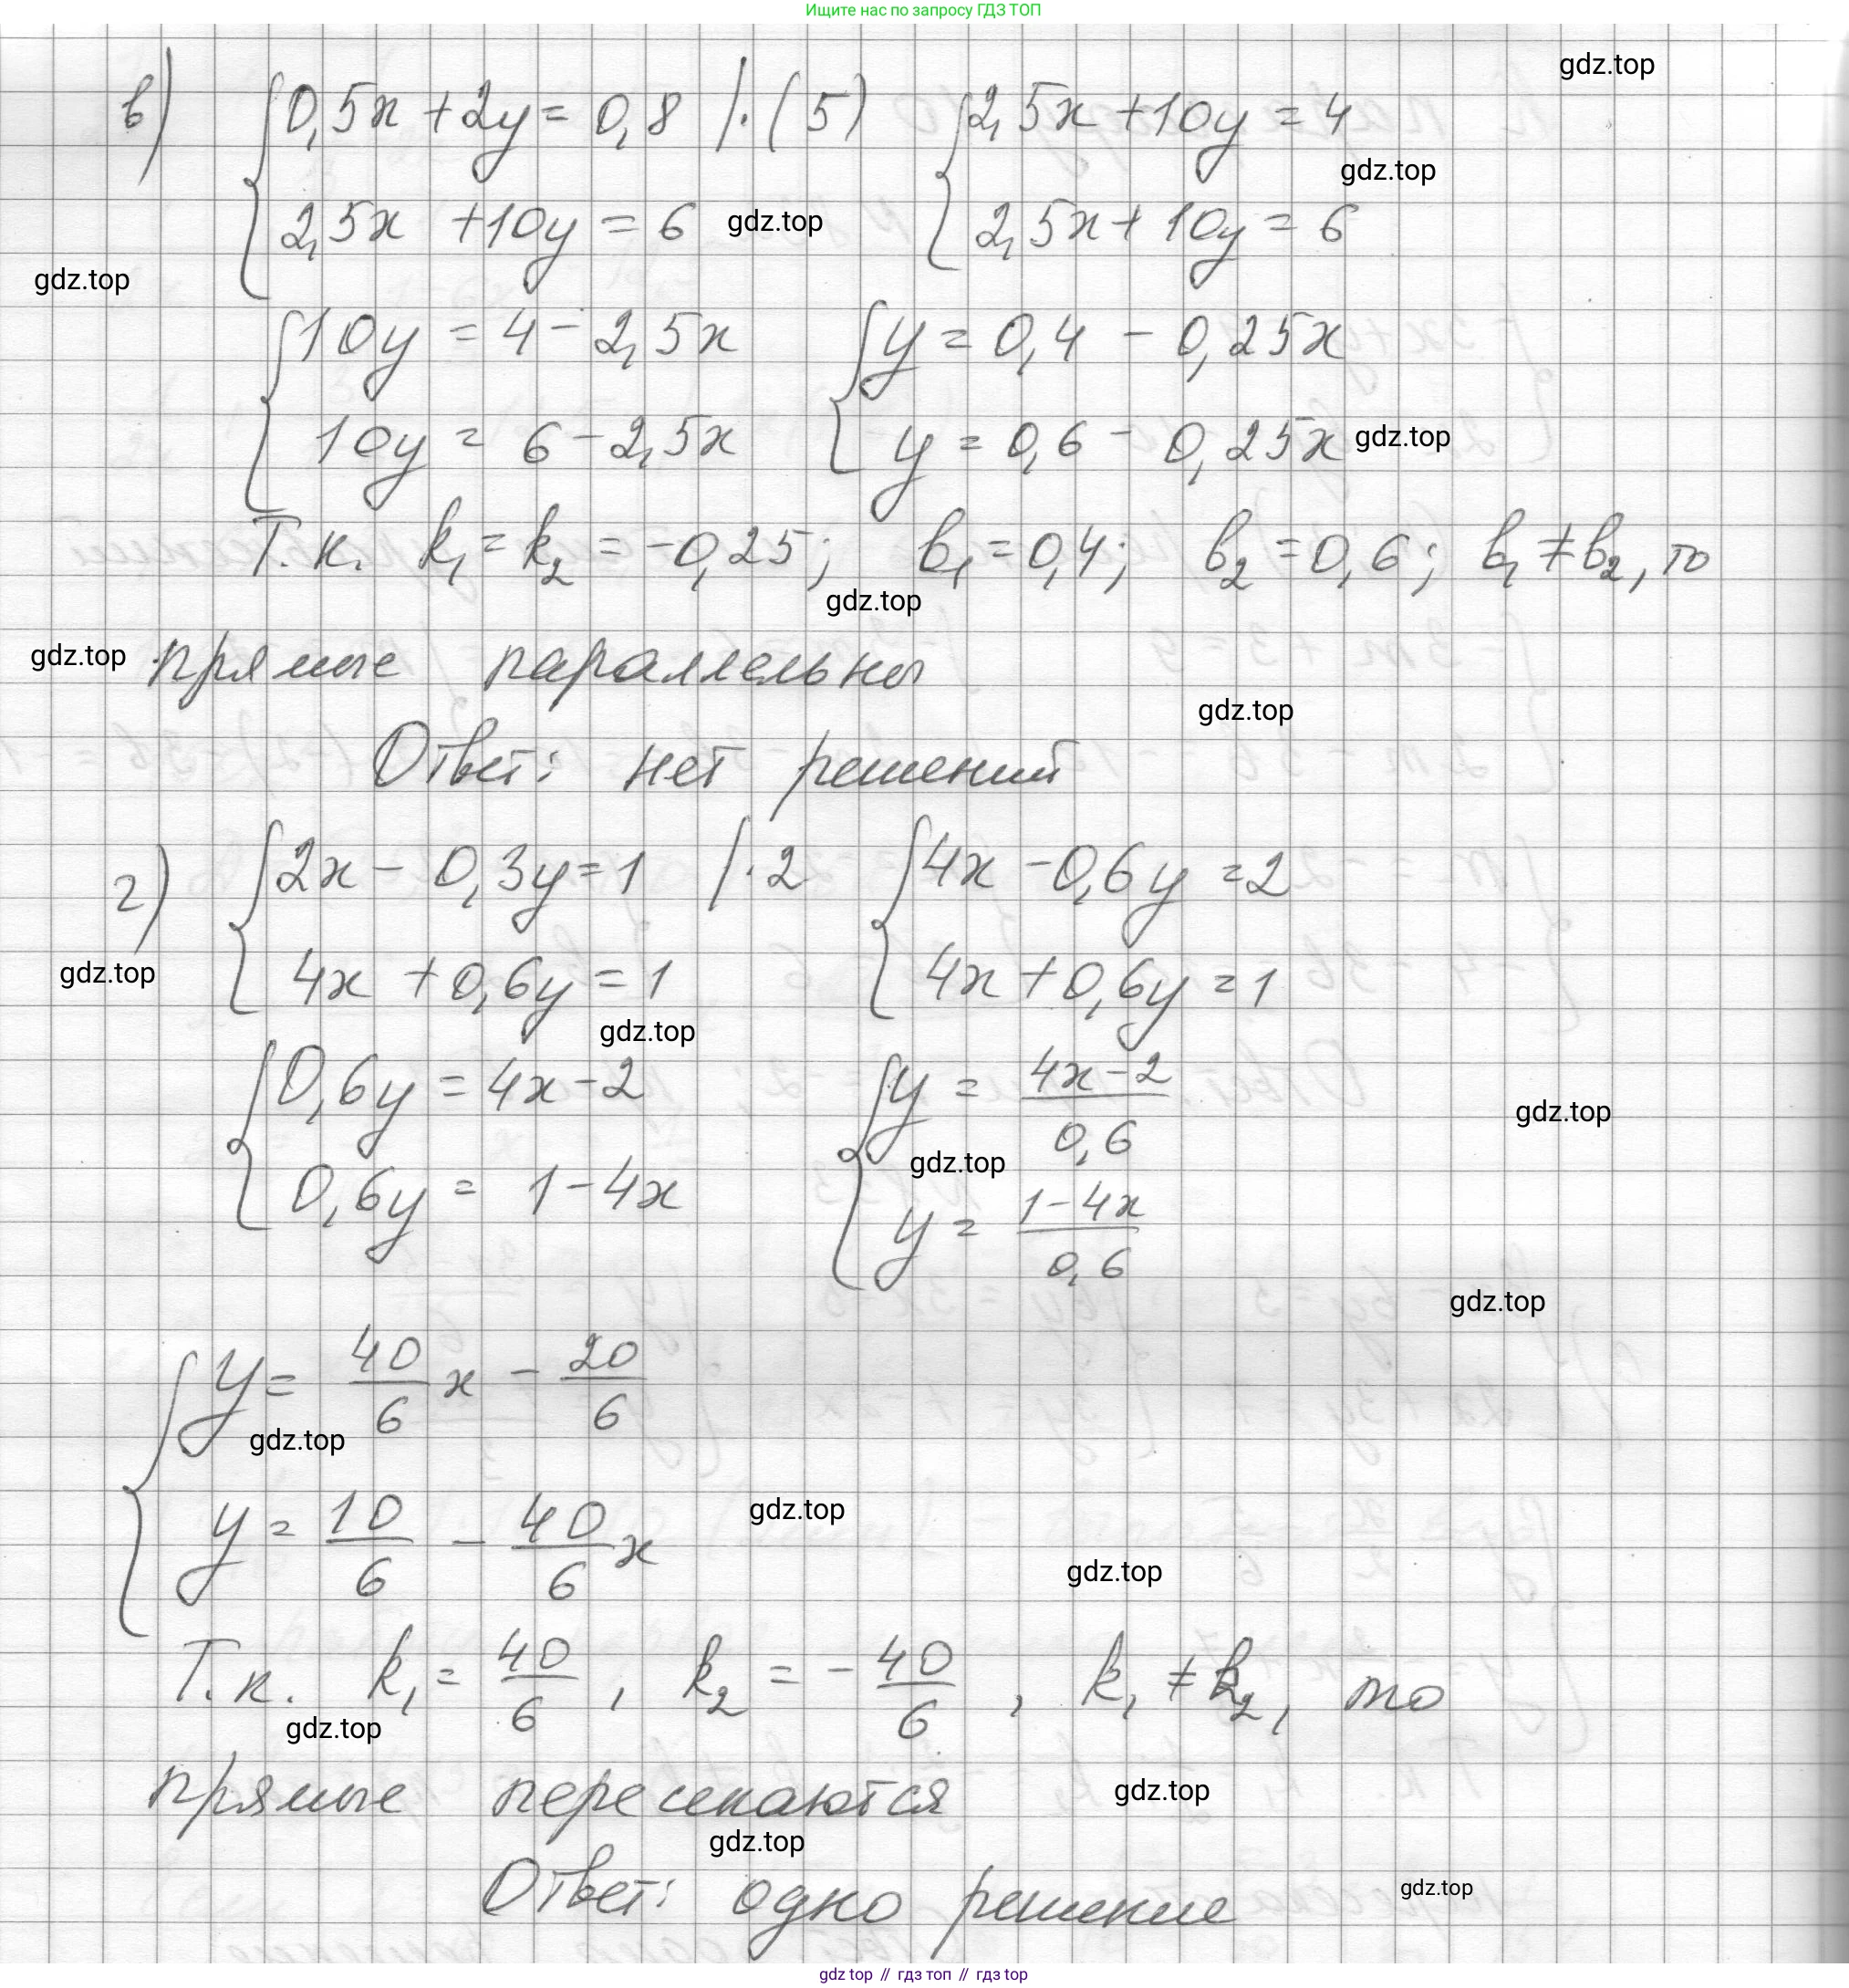 Ищите нас по запросу ГДЗ ТОП
gdz.top
в) { 0,5x + 2y = 0,8 | · (5) { 2,5x + 10y = 4
gdz.top
2,5x + 10y = 6 gdz.top 2,5x + 10y = 6
gdz.top
{ 10y = 4 - 2,5x { y = 0,4 - 0,25x
10y = 6 - 2,5x y = 0,6 - 0,25x gdz.top
Т.к. k₁ = k₂ = -0,25; b₁ = 0,4; b₂ = 0,6; b₁ ≠ b₂, то
gdz.top
gdz.top прямые параллельны
gdz.top
Ответ: нет решений
г) { 2x - 0,3y = 1 | · 2 { 4x - 0,6y = 2
gdz.top 4x + 0,6y = 1 4x + 0,6y = 1
gdz.top
{ 0,6y = 4x - 2 { y = (4x - 2)/0,6
gdz.top
gdz.top
0,6y = 1 - 4x y = (1 - 4x)/0,6
gdz.top
{ y = 40/6 x - 20/6
gdz.top
gdz.top
y = 10/6 - 40/6 x
gdz.top
Т.к. k₁ = 40/6, k₂ = - 40/6, k₁ ≠ k₂, то
gdz.top
прямые пересекаются gdz.top
gdz.top
Ответ: одно решение gdz.top
gdz top // гдз топ // гдз top